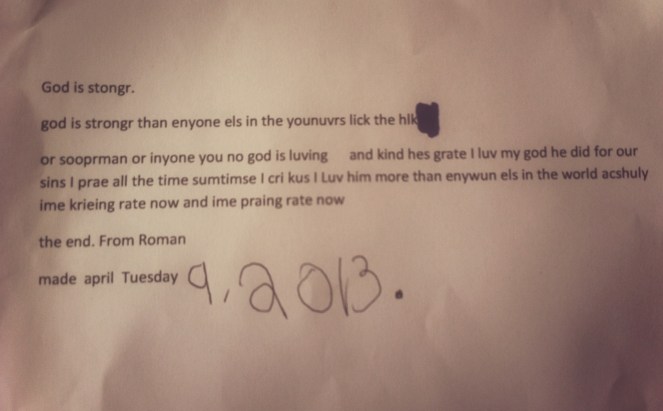 God is stongr.
god is strongr than enyone els in the younuvrs lick the hlk
or sooprman or inyone you no god is luving and kind hes grate I luv my god he did for our
sins I prae all the time sumtimse I cri kus I Luv him more than enywun els in the world acshuly
ime krieing rate now and ime praing rate now
the end. From Roman
made april Tuesday 9, 2013.